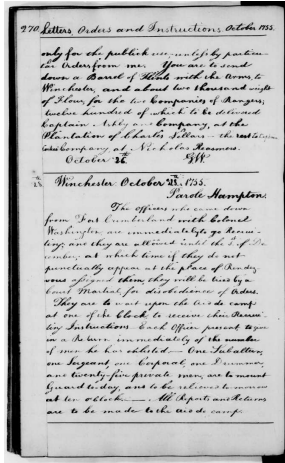 270 Letters, Orders and Instructions October 1755.
only for the publick use, unless by particu-
lar Orders from me. You are to send
down a Barrel of Flints with the Arms, to
Winchester, and about two thousand weight
of Flour, for the two Companies of Rangers;
twelve hundred of which to be delivered
Captain Ashby and Company, at the
Plantation of Charles Sellars— the rest to Captain
Cockes Company at Nicholas Reasmers.
October 26. GW.
Winchester October 28th 1755.
Parole Hampton.
The officers who came down
from Fort Cumberland with Colonel
Washington, are immediately to go Recrui-
ting; and they are allowed until the 1st of De-
cember; at which time if they do not
punctually appear at the place of Rendez-
vous assigned them, they will be tried by a
Court Martial, for disobedience of Orders.
They are to wait upon the Aid de camp
at one of the Clock to receive their Recrui-
ting Instructions. Each Officer present to give
in a Return immediately of the number
of men he has enlisted. One Subaltern,
one Sergeant, one Corporal, one Drummer,
and twenty-five private men, are to mount
Guard to day, and to be relieved to morrow
at ten o'clock. All Reports and Returns
are to be made to the Aid de camp.